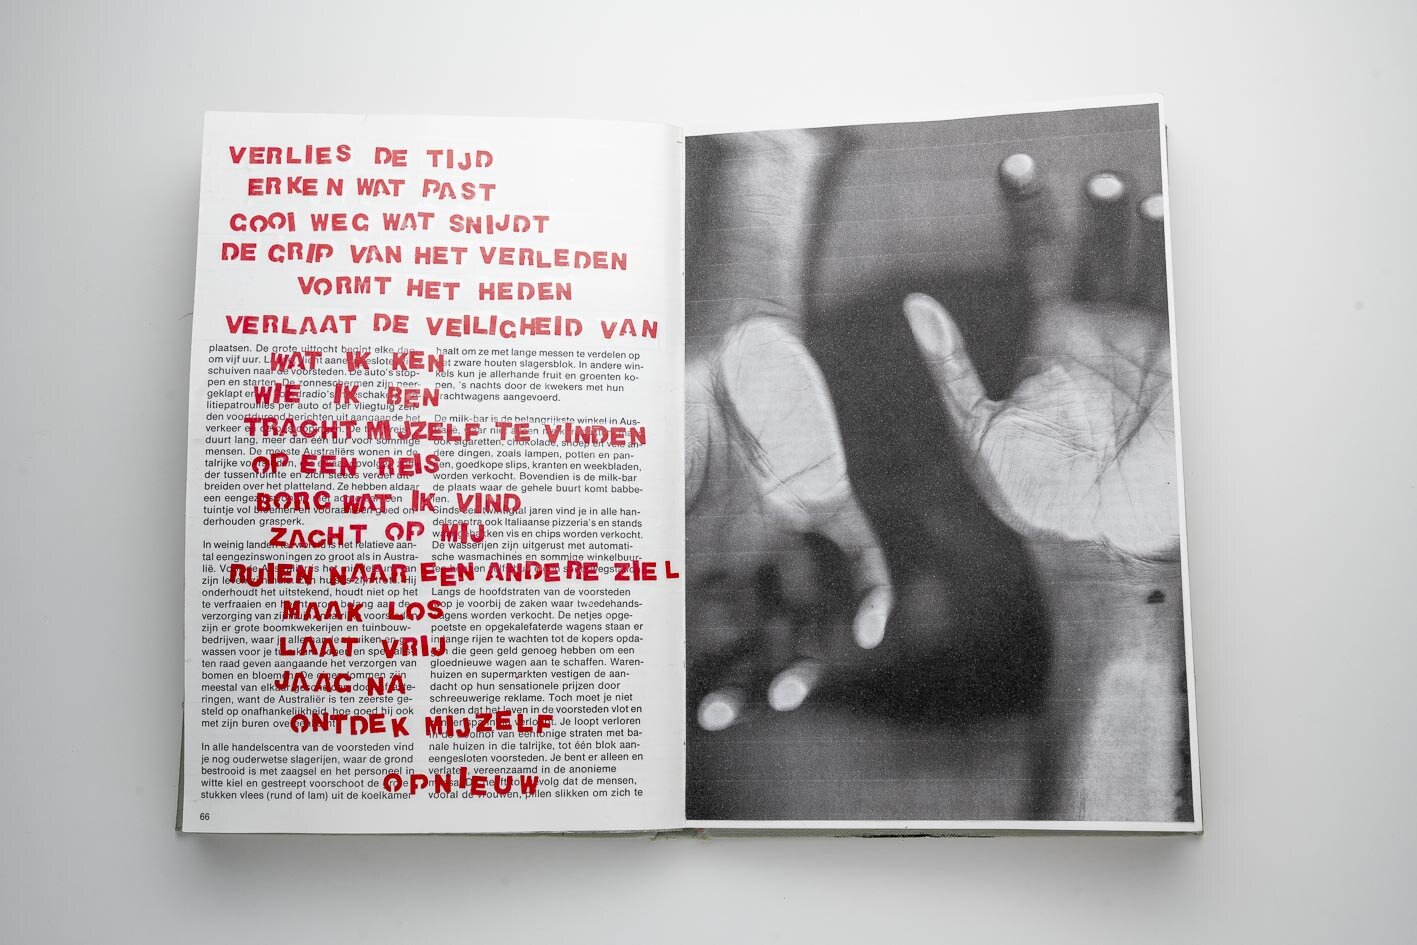 VERLIES DE TIJD
ERKEN WAT PAST
GOOI WEG WAT SNIJDT
DE GRIP VAN HET VERLEDEN
VORMT HET HEDEN
VERLAAT DE VEILIGHEID VAN
WAT IK KEN
WIE IK BEN
TRACHT MIJZELF TE VINDEN
OP EEN REIS
BORG WAT IK VIND
ZACHT OP MIJ
RUIEN NAAR EEN ANDERE ZIEL
MAAK LOS
LAAT VRIJ
JAAG NA
ONTDEK MIJZELF
OPNIEUW
plaatsen. De grote uittocht begint elke dag
om vijf uur.
schuiven naar de voorsteden. De auto's stop-
pen en starten. De zonneschermen zijn neer-
geklapt en
litiepatrouilles per auto of per vliegtuig
den voortdurend berichten uit aangaande het
verkeer en
duurt lang, meer dan een uur voor sommige
mensen. De meeste Australiërs wonen in de
talrijke
der tussenruimte en zich steeds verder uit-
breiden over het platteland. Ze hebben aldaar
een
tuintje vol bloemen en vooraan een goed on-
derhouden grasperk.
In weinig landen is het relatieve aan-
tal eengezinswoningen zo groot als in Austra-
lië.
zijn
onderhoudt het uitstekend, houdt niet op het
te verfraaien en
verzorging van
zijn er grote boomkwekerijen en tuinbouw-
bedrijven, waar
wassen voor je
ten raad geven aangaande het verzorgen van
bomen en
meestal van
ringen, want de Australiër is ten zeerste ge-
steld op onafhankelijkheid, hoe goed hij ook
met zijn buren
In alle handelscentra van de voorsteden vind
je nog ouderwetse slagerijen, waar de grond
bestrooid is met zaagsel en het personeel in
witte kiel en gestreept voorschoot de grote
stukken vlees (rund of lam) uit de koelkamer
66
haalt om ze met lange messen te verdelen op
het zware houten slagersblok. In andere win-
kels kun je allerhande fruit en groenten ko-
pen, 's nachts door de kwekers met hun
vrachtwagens aangevoerd.
De milk-bar is de belangrijkste winkel in Aus-
ook sigaretten, chokolade, snoep en vele an-
dere dingen, zoals lampen, potten en pan-
nen, goedkope slips, kranten en weekbladen,
worden verkocht. Bovendien is de milk-bar
de plaats waar de gehele buurt komt babbe-
len.
Sinds een twintigtal jaren vind je in alle han-
delscentra ook Italiaanse pizzeria's en stands
waar gebakken vis en chips worden verkocht.
De wasserijen zijn uitgerust met automati-
sche wasmachines en sommige winkelbuur-
Langs de hoofdstraten van de voorsteden
loop je voorbij de zaken waar tweedehands-
wagens worden verkocht. De netjes opge-
poetste en opgekalefaterde wagens staan er
in lange rijen te wachten tot de kopers opda-
gen die geen geld genoeg hebben om een
gloednieuwe wagen aan te schaffen. Waren-
huizen en supermarkten vestigen de aan-
dacht op hun sensationele prijzen door
schreeuwerige reklame. Toch moet je niet
denken dat het leven in de voorsteden vlot en
Je loopt verloren
in de doolhof van eentonige straten met ba-
nale huizen in die talrijke, tot één blok aan-
eengesloten voorsteden. Je bent er alleen en
verlaten, vereenzaamd in de anonieme
massa. tot gevolg dat de mensen,
vooral de vrouwen, pillen slikken om zich te